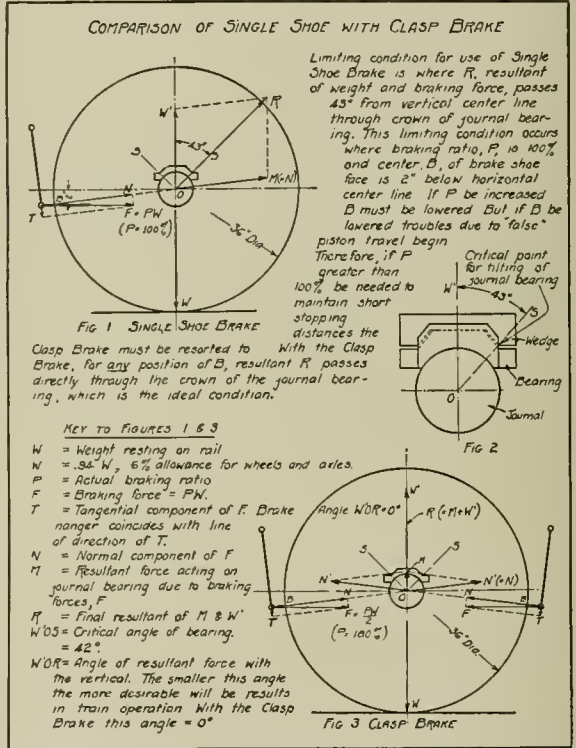 COMPARISON OF SINGLE SHOE WITH CLASP BRAKE
Limiting condition for use of Single
Shoe Brake is where R, resultant
of weight and braking force, passes
43° from vertical center line
through crown of journal bear-
ing. This limiting condition occurs
where braking ratio, P, is 100%
and center, B, of brake shoe
face is 2" below horizontal
center line If P be increased
B must be lowered But if B be
lowered troubles due to "false"
piston travel begin
Therefore, if P
greater than
100% be needed to
maintain short
stopping
distances the
Clasp Brake must be resorted to With the Clasp
Brake, for any position of B, resultant R passes
directly through the crown of the journal bear-
ing, which is the ideal condition.
W'
R
43°
S
S
M(=N)
O
N
B
T
F = PW
(P = 100%)
36" Dia
W
FIG 1 SINGLE SHOE BRAKE
Critical point
for tilting of
journal bearing
W'
43°
S
Wedge
Bearing
O
Journal
FIG 2
KEY TO FIGURES 1 & 3
W = Weight resting on rail
W = .94 W, 6% allowance for wheels and axles.
P = Actual braking ratio
F = Braking force = PW.
T = Tangential component of F. Brake
hanger coincides with line
of direction of T.
N = Normal component of F
M = Resultant force acting on
journal bearing due to braking
forces, F
R = Final resultant of M & W'
W'OS = Critical angle of bearing.
= 42°.
W'OR = Angle of resultant force with
the vertical. The smaller this angle
the more desirable will be results
in train operation With the Clasp
Brake this angle = 0°
W'
Angle W'OR=0°
R (=M+W')
S
M
S
N'
N'(=N)
O
B
N
N
B
T
F = PW/2
(P = 100%)
T
36" Dia.
W
FIG 3 CLASP BRAKE